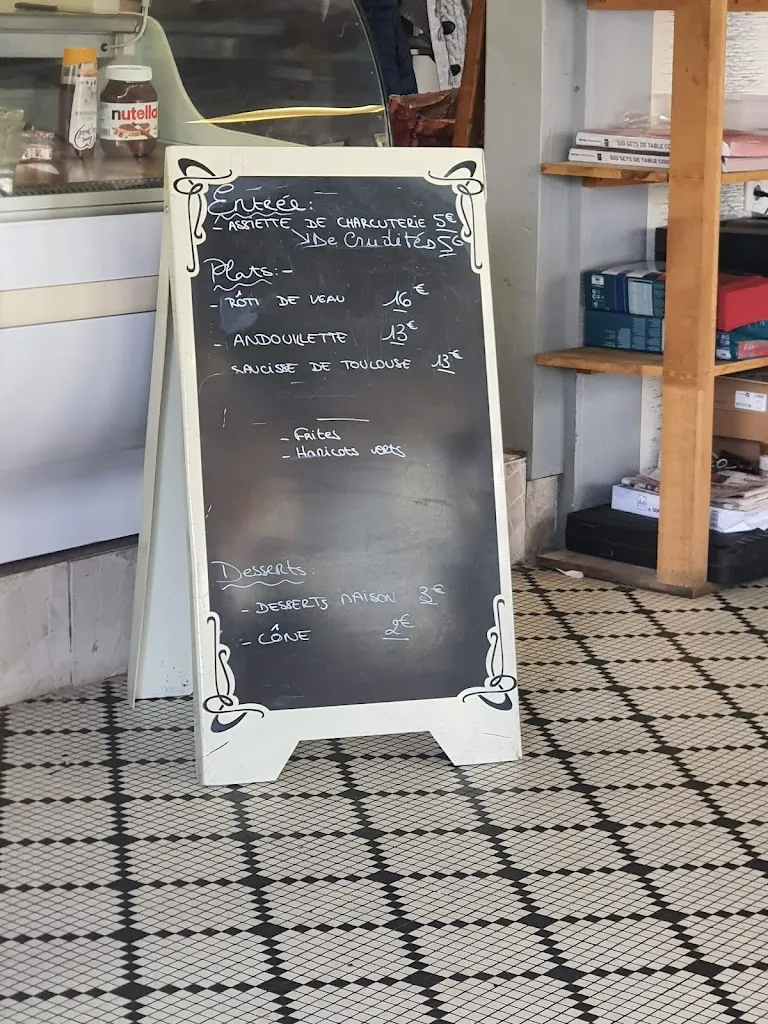 nutella
500 SETS DE TABLE
500 SETS DE TABLE
Entrée:
- ASSIETTE DE CHARCUTERIE 5€
De Crudités 5€
Plats:-
- RÔTI DE VEAU 16€
- ANDOUILLETTE 13€
SAUCISSE DE TOULOUSE 13€
- Frites
- Haricots verts
Desserts:
- DESSERTS MAISON 3€
- CÔNE 2€